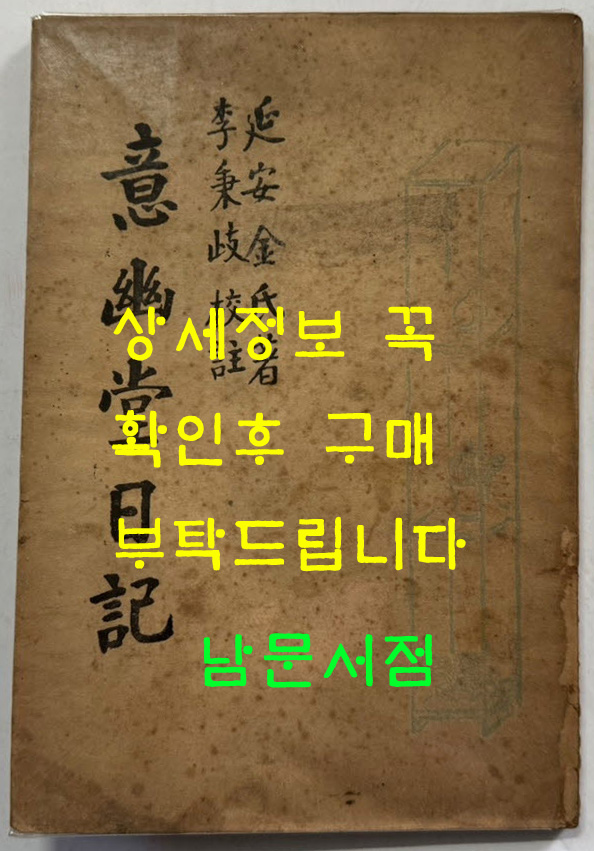 延安金氏著
李秉岐校註
意幽堂日記
상세정보 꼭
확인후 구매
부탁드립니다
남문서점